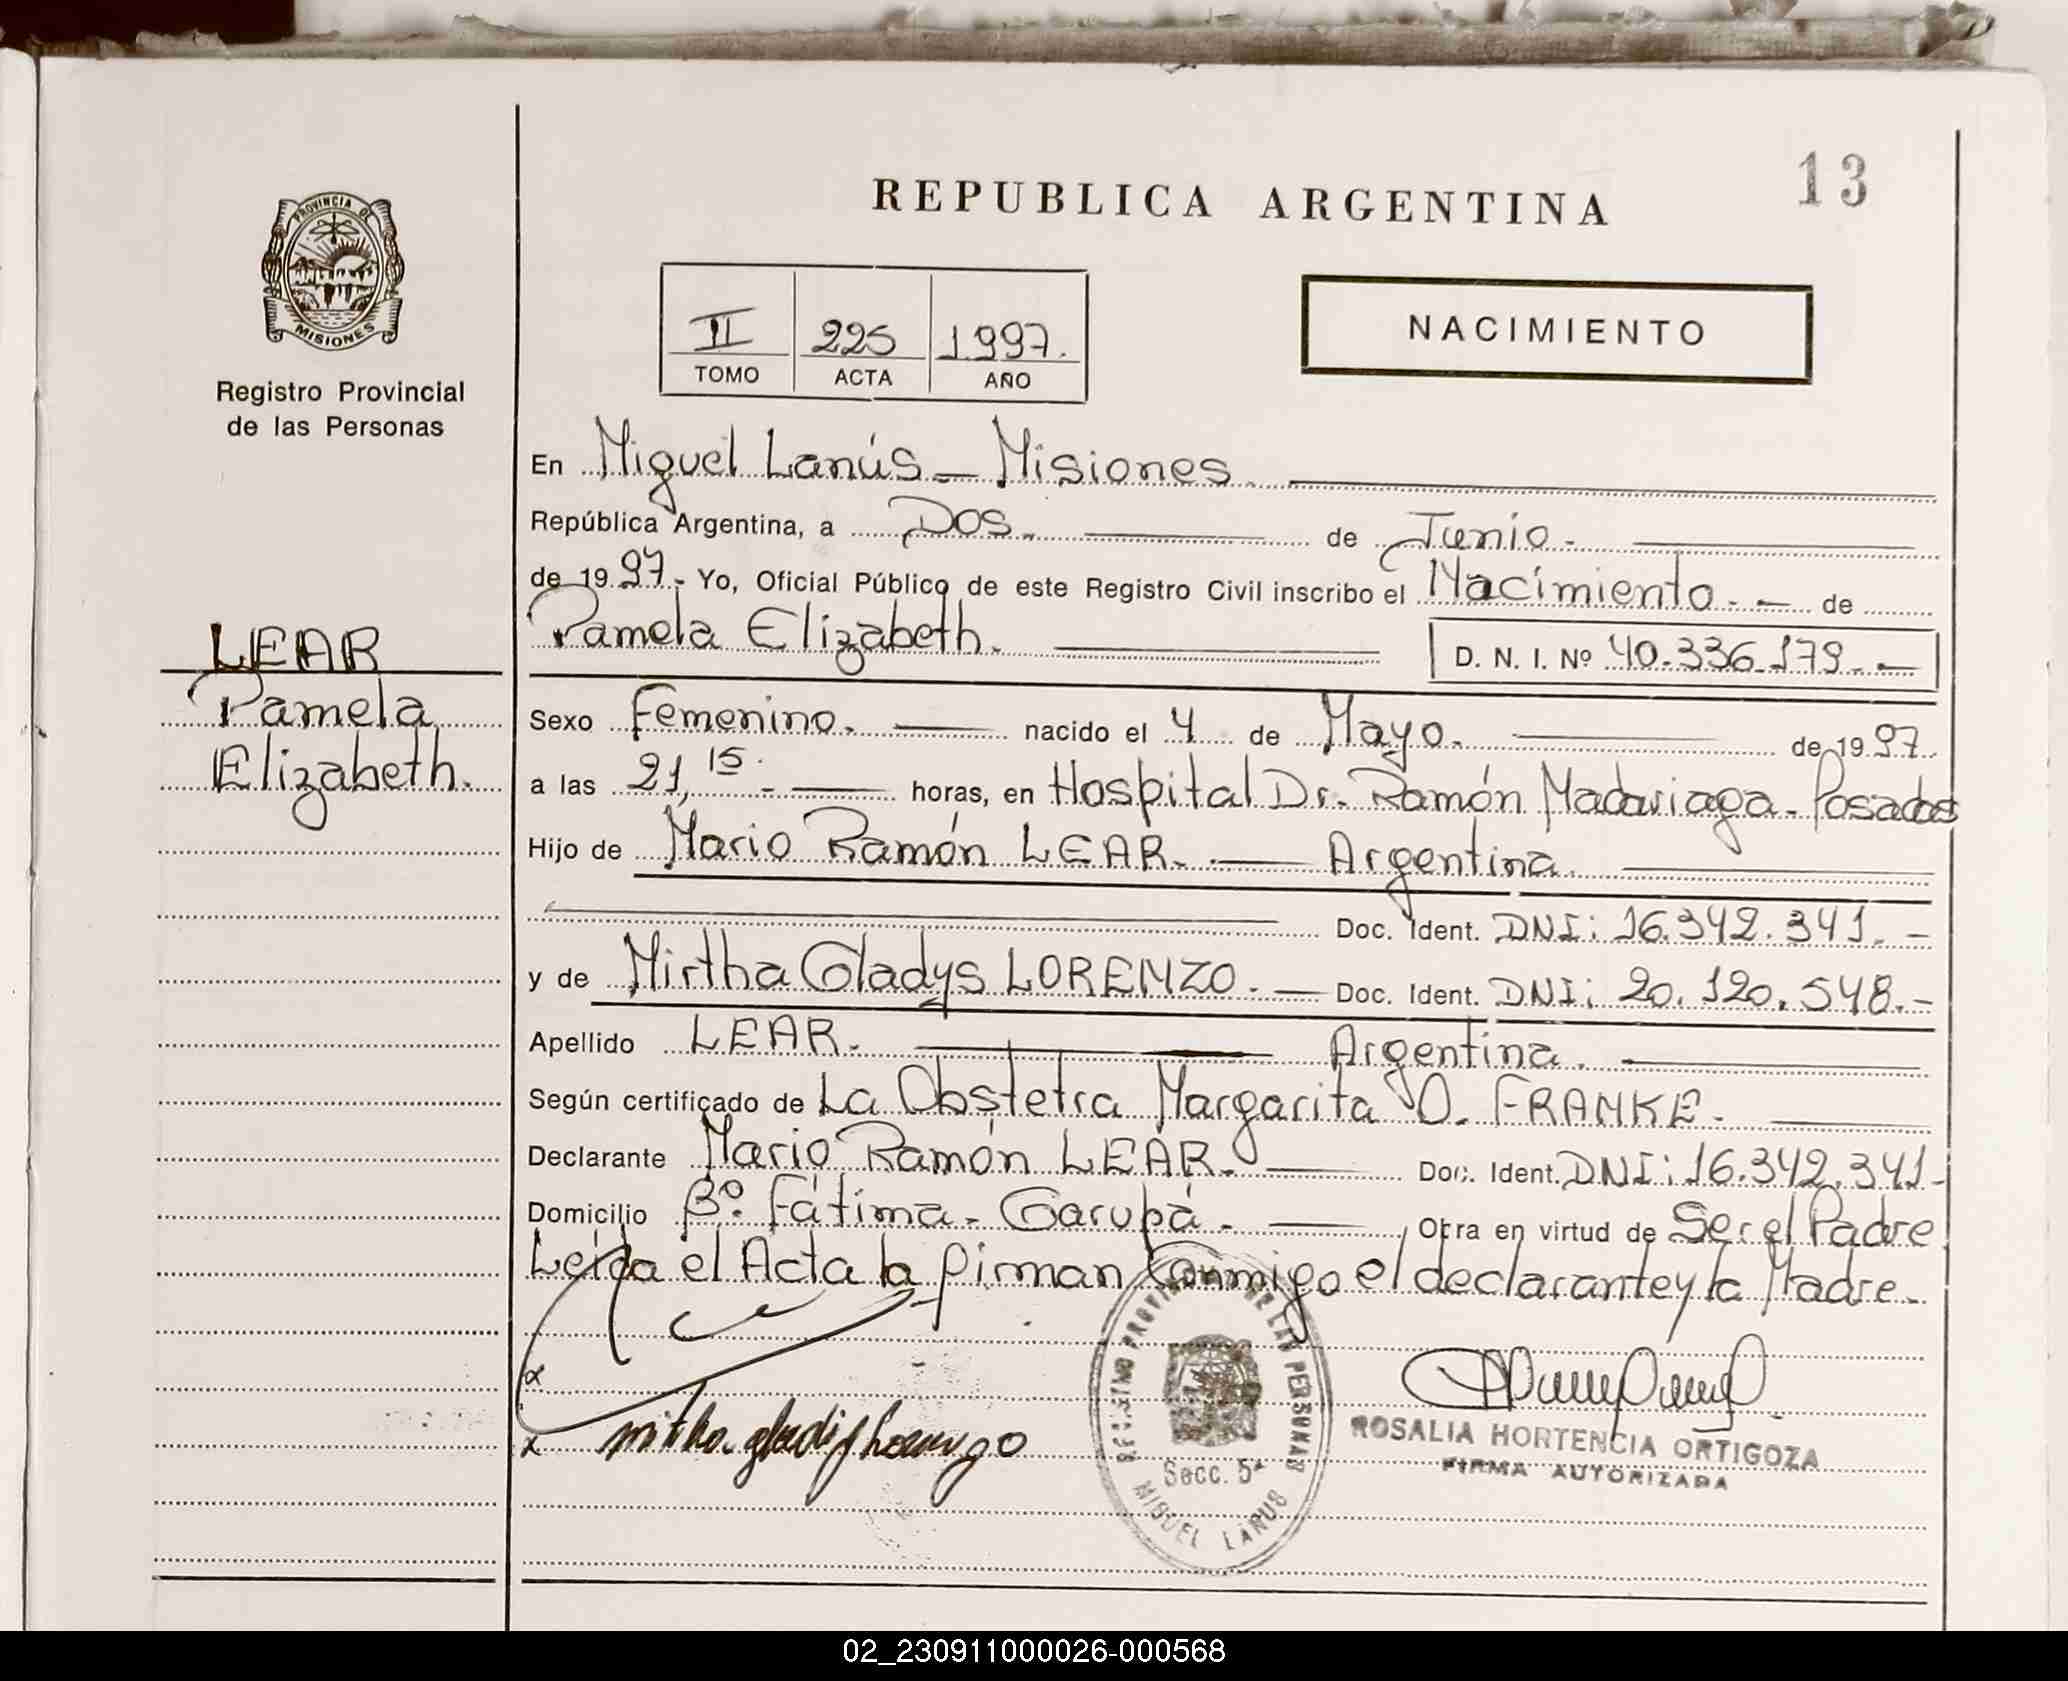 REPUBLICA ARGENTINA
13
PROVINCIA DE
MISIONES
Registro Provincial
de las Personas
II 225 1.997.
TOMO ACTA AÑO
NACIMIENTO
En Miguel Lanús - Misiones
República Argentina, a Dos. de Junio.
de 19 97.- Yo, Oficial Público de este Registro Civil inscribo el Nacimiento. - de
Pamela Elizabeth. D. N. I. Nº 40.336.179.-
LEAR
Pamela
Elizabeth.
Sexo Femenino. nacido el 4 de Mayo. de 19 97.
a las 21,15.- horas, en Hospital Dr. Ramón Madariaga - Posadas
Hijo de Mario Ramón LEAR. Argentina.
Doc. Ident. DNI: 16.342.341.-
y de Mirtha Gladys LORENZO. Doc. Ident. DNI: 20.120.548.-
Apellido LEAR. Argentina.
Según certificado de La Obstetra Margarita O. FRANKE.
Declarante Mario Ramón LEAR. Doc. Ident. DNI: 16.342.341-
Domicilio Bº. Fátima - Garupá. Obra en virtud de Ser el Padre
Leída el Acta la firman Conmigo el declarante y la Madre.
ROSALIA HORTENCIA ORTIGOZA
FIRMA AUTORIZADA
Secc. 5ª
MIGUEL LANUS
02_230911000026-000568